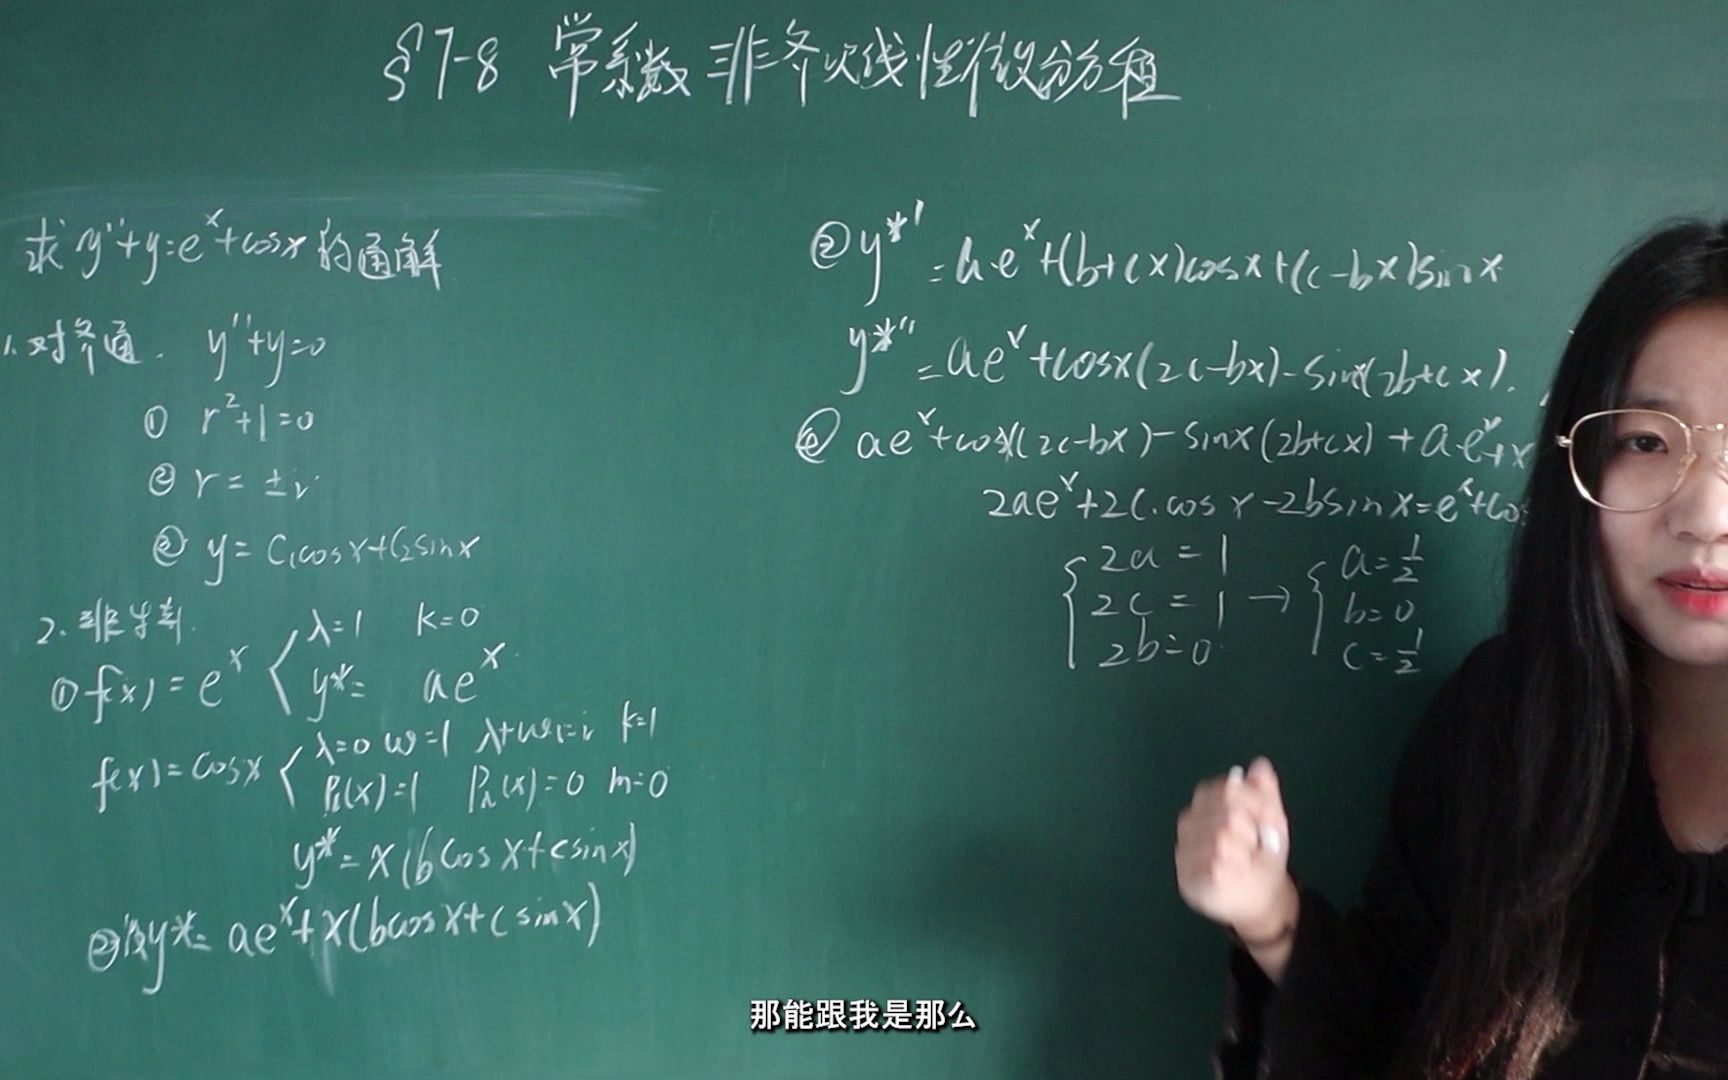 §7-8 常系数非齐次线性微分方程
求 y''+y=e^x+cosx 的通解
1. 对齐通. y''+y=0
① r²+1=0
② r=±i
③ y=C₁cosx+C₂sinx
2. 非齐特.
① f(x)=e^x { λ=1 k=0
y*= ae^x.
f(x)=cosx { λ=0 ω=1 λ+ωi=i k=1
Pₗ(x)=1 Pₙ(x)=0 m=0
y*=x(bcosx+csinx)
②设y*=ae^x+x(bcosx+csinx)
③ y*'=a·e^x+(b+cx)cosx+(c-bx)sinx
y*''=ae^x+cosx(2c-bx)-sinx(2b+cx).
④ ae^x+cosx(2c-bx)-sinx(2b+cx)+ae^x+x
2ae^x+2c·cosx-2bsinx=e^x+cos
{ 2a=1 → { a=1/2
2c=1 b=0
2b=0 c=1/2
那能跟我是那么